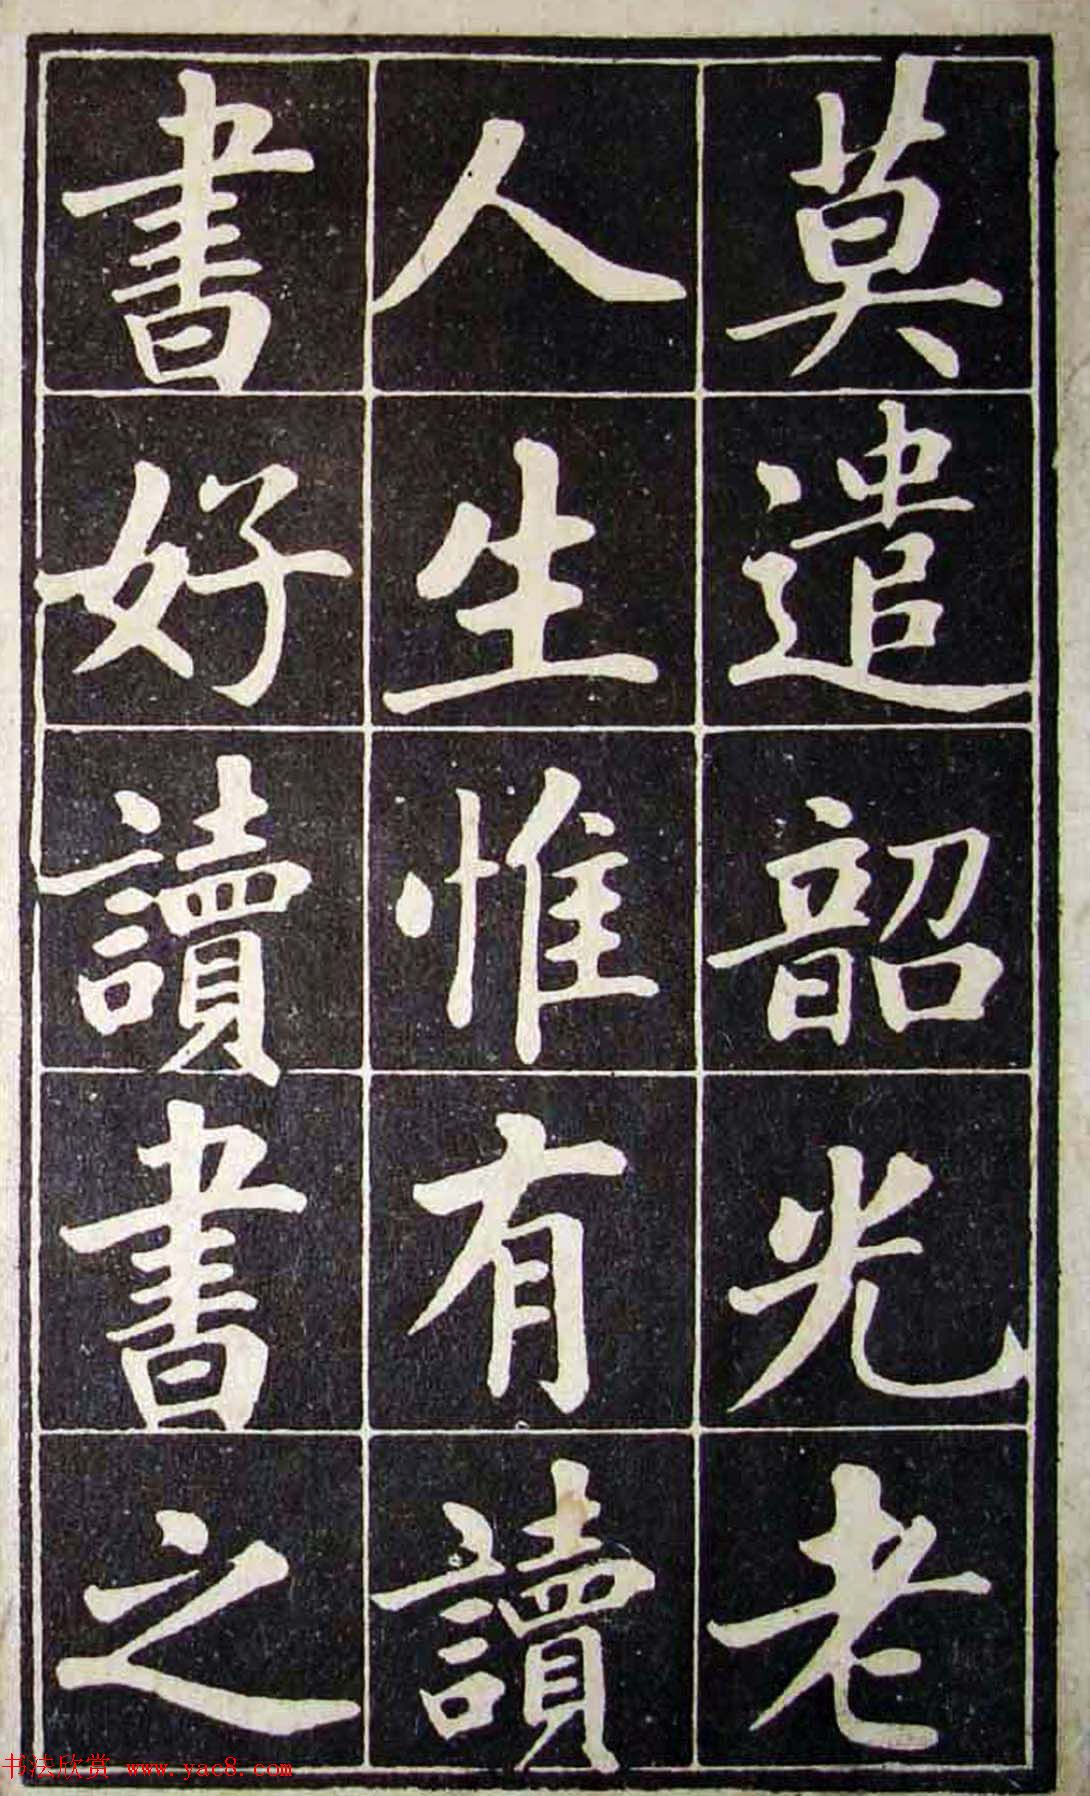 莫遣韶光老
人生惟有讀
書好讀書之
书法欣赏 www.yac8.com